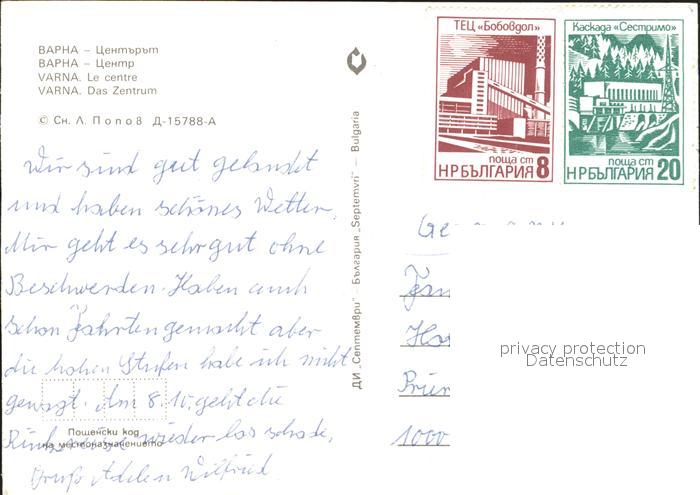 ВАРНА – Центърът
ВАРНА – Центр
VARNA. Le centre
VARNA. Das Zentrum
© Сн. Л. Попов Д-15788-А
Wir sind gut gelandet
und haben schönes Wetter.
Mir geht es sehr gut ohne
Beschwerden. Haben auch
schon Fahrten gemacht aber
die hohen Stufen habe ich nicht
gewagt. Am 8.10. geht die
Rückreise wieder los schade,
Gruß Wilfried
Пощенски код
на местоназначението
ДИ „Септември" – България „Septemvri" – Bulgaria
ТЕЦ «Бобовдол»
поща ст
НР БЪЛГАРИЯ 8
Каскада «Сестримо»
поща ст
НР БЪЛГАРИЯ 20
1000
privacy protection
Datenschutz